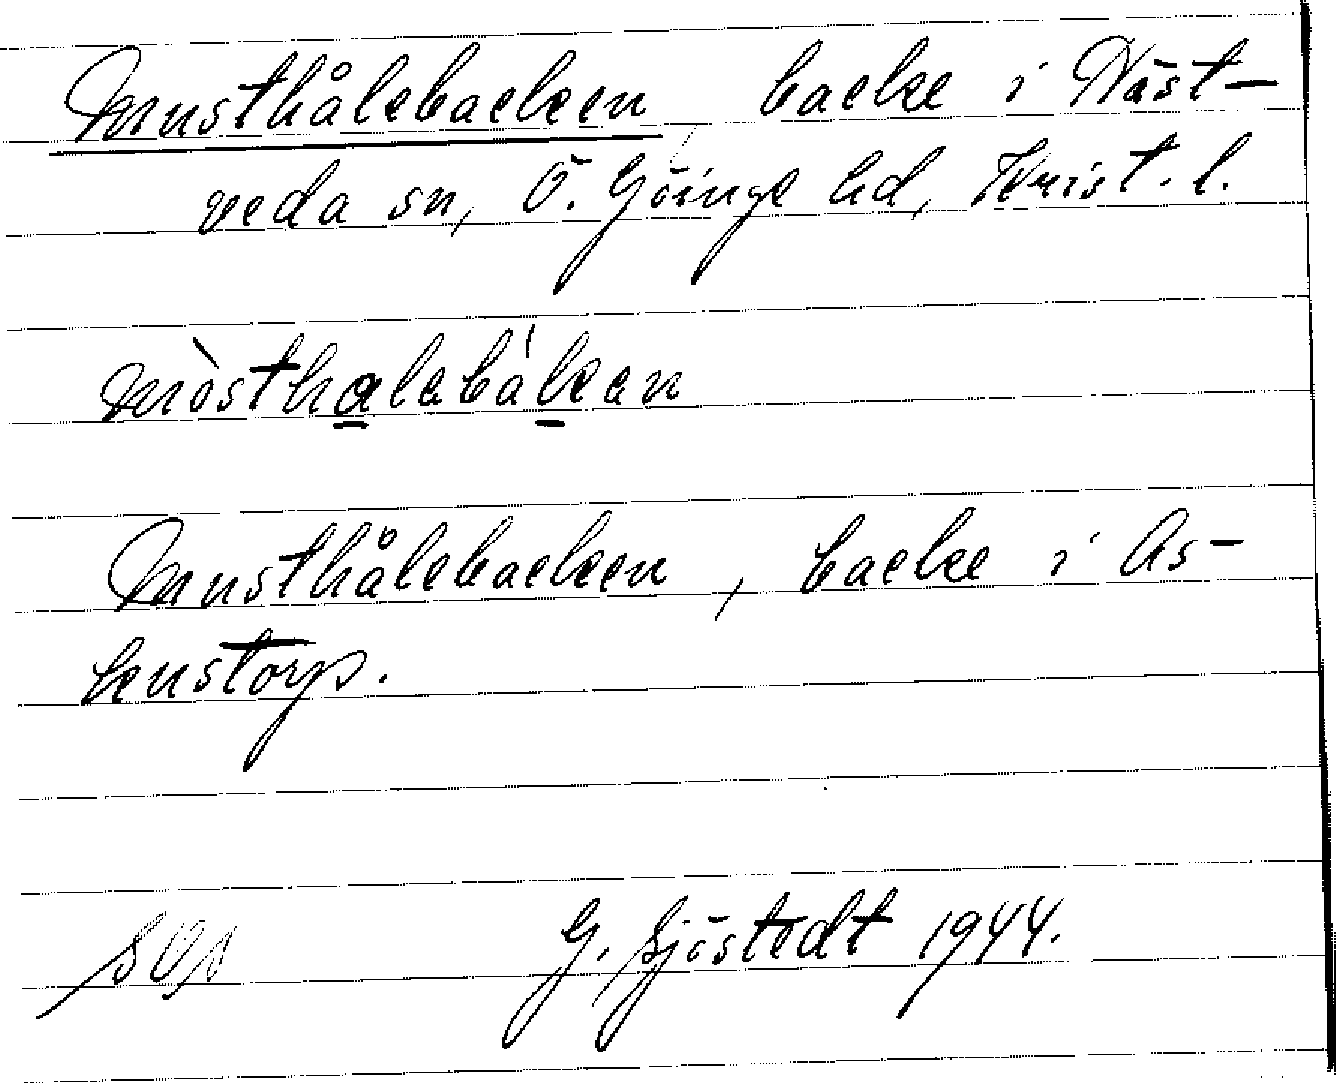 Musthålebacken, backe i Näst-
veda sn, Ö. Göinge hd, Krist. l.
mòsthalebákan
Musthålebacken, backe i As-
kenstorp.
G. Sjöstedt 1944.